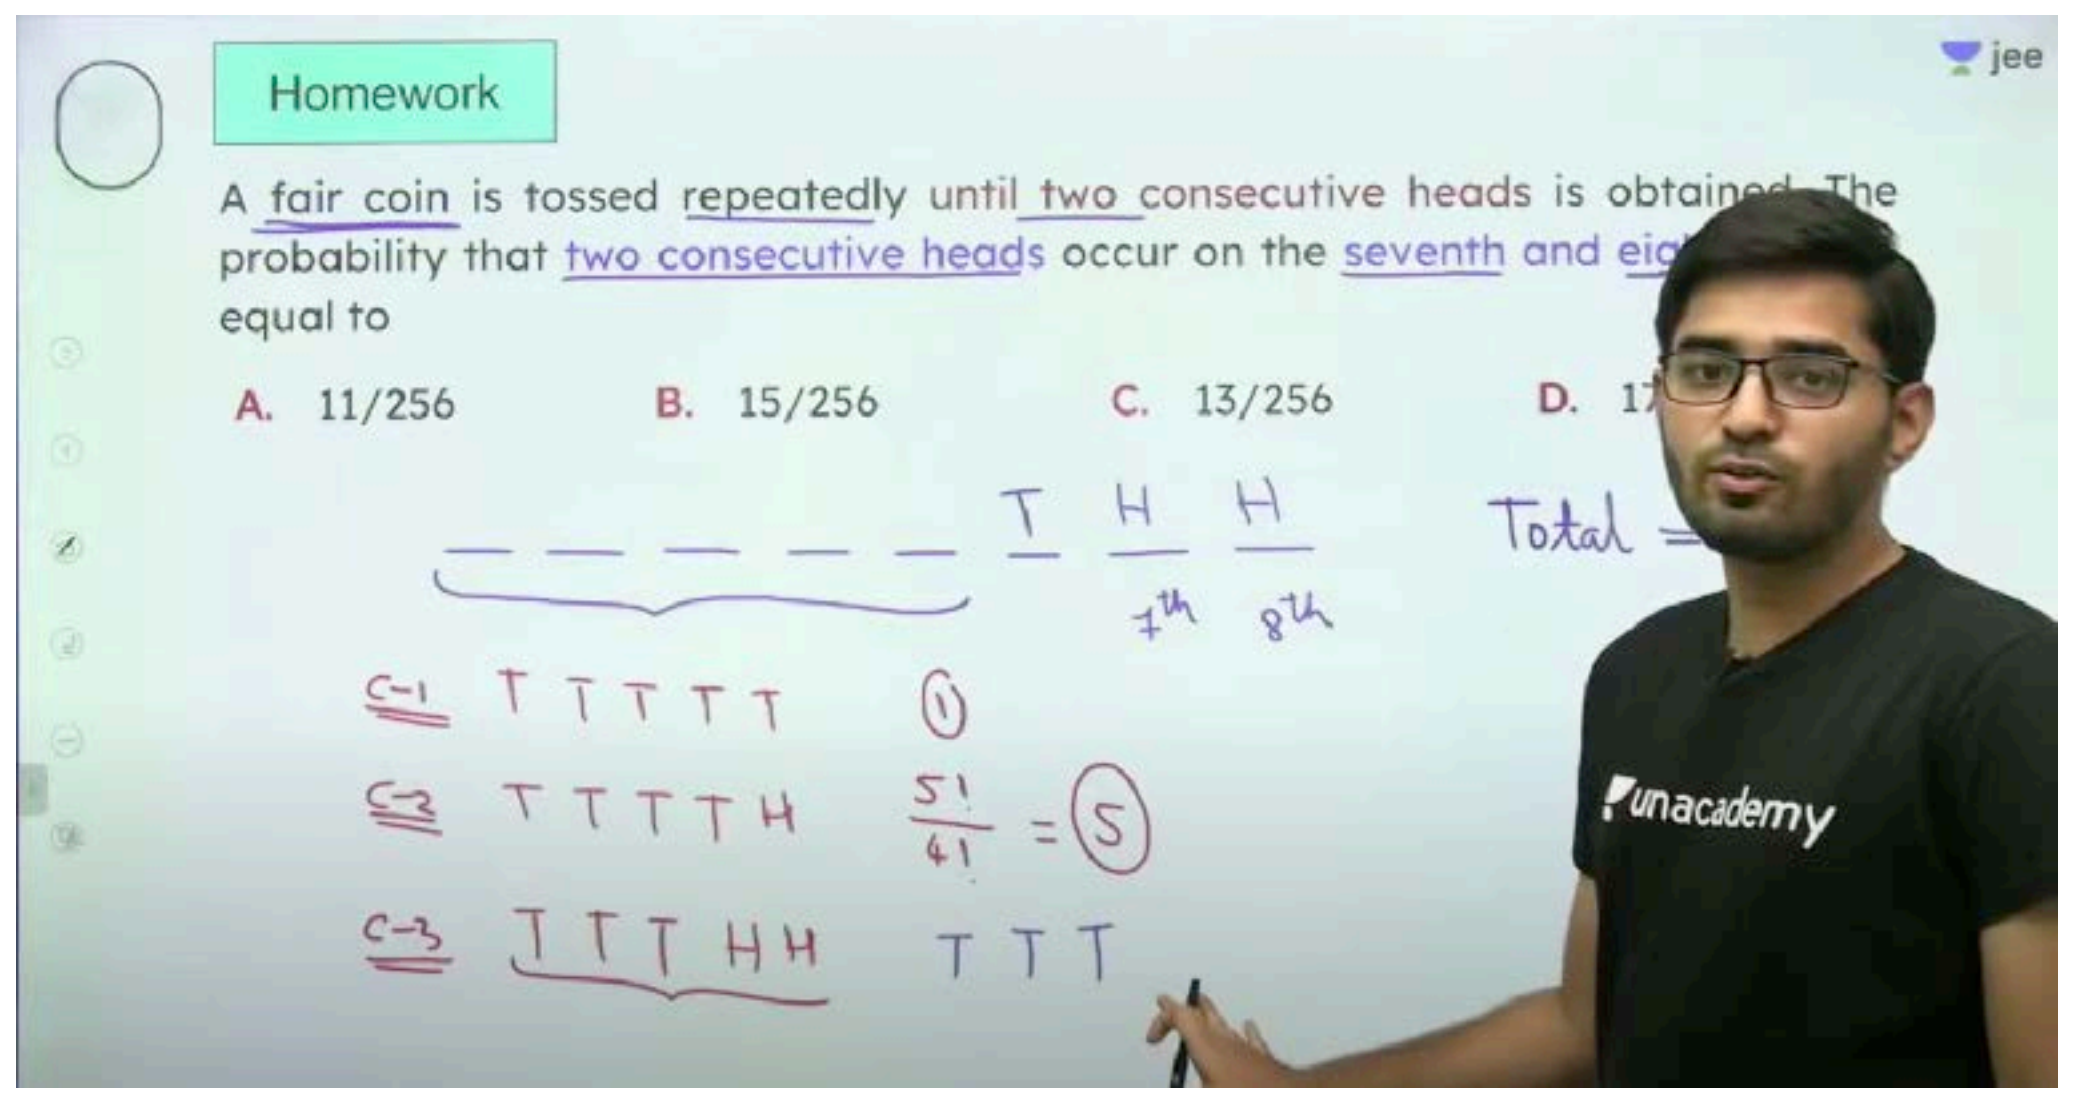 jee
Homework
A fair coin is tossed repeatedly until two consecutive heads is obtained. The
probability that two consecutive heads occur on the seventh and
equal to
A. 11/256 B. 15/256 C. 13/256 D.
T H H
Total =
7th 8th
C-1 T T T T T 1
C-2 T T T T H 5!/4! = 5
C-3 T T T H H T T T
unacademy